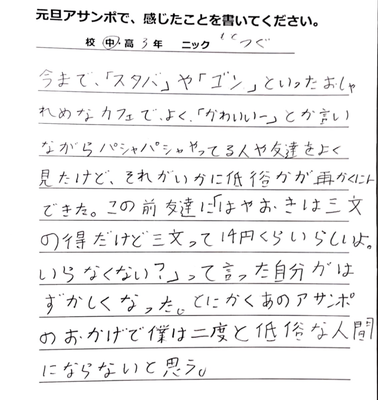 元旦アサンポで、感じたことを書いてください。
校 中・高 3年 ニック いとつぐ
今まで、「スタバ」や「ゴン」といったおしゃ
れめなカフェで、よく、「かわいいー」とか言い
ながらパシャパシャやってる人や友達をよく
見たけど、それがいかに低俗かが再かくにん
できた。この前友達に「はやおきは三文
の得だけど三文って14円くらいらしいよ。
いらなくない?」って言った自分がは
ずかしくなった。とにかくあのアサンポ
のおかげで僕は二度と低俗な人間
にならないと思う。